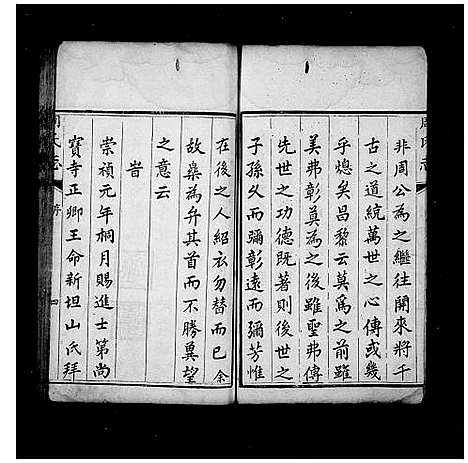 非周公為之繼往開來將千
古之道統萬世之心傳或幾
乎熄矣昌黎云莫為之前雖
美弗彰莫為之後雖聖弗傳
先世之功德既著則後世之
子孫久而彌彰遠而彌芳惟
在後之人紹衣勿替而已余
故槀為弁其首而不勝冀望
之意云
旹
崇禎元年桐月賜進士第尚
寶寺正卿王命新坦山氏拜
周氏志
序
四